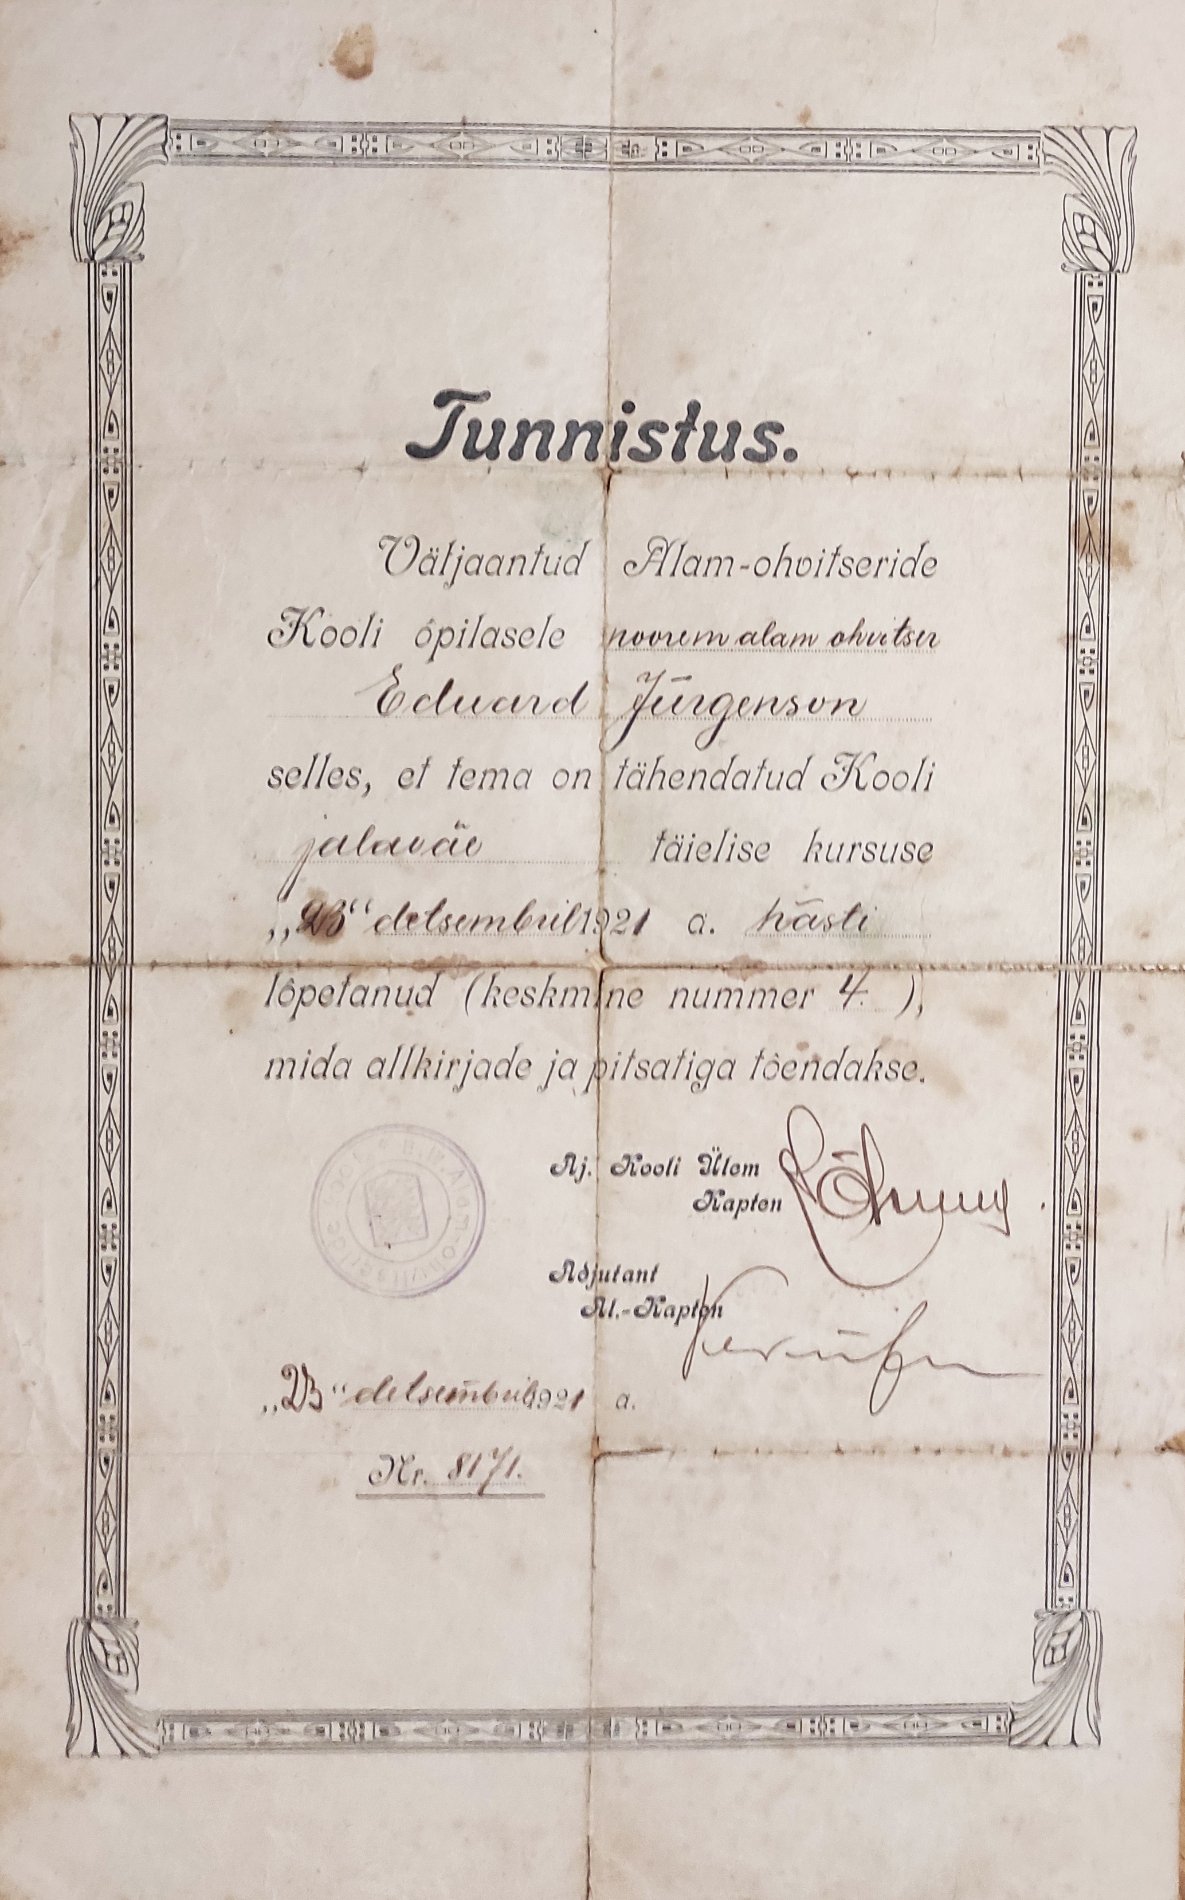 Tunnistus.
Väljaantud Alam-ohvitseride
Kooli õpilasele noorem alam ohvitser
Eduard Jürgenson
selles, et tema on tähendatud Kooli
jalaväe täielise kursuse
„23“ detsembril 1921 a. hästi
lõpetanud (keskmine nummer 4. ),
mida allkirjade ja pitsatiga tõendakse.
Aj. Kooli Ülem
Kapten
Adjutant
Al.-Kapten
„23“ detsembril 1921 a.
Nr. 8171.